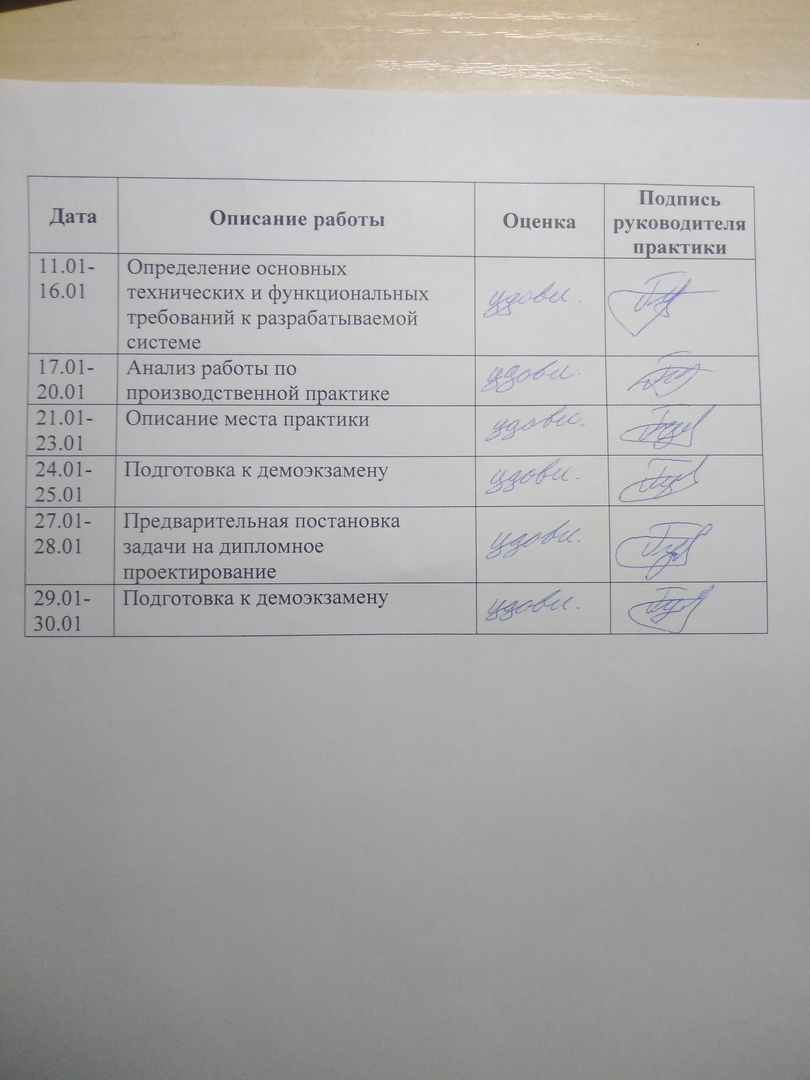 Дата
Описание работы
Оценка
Подпись
руководителя
практики
11.01-
16.01
Определение основных
технических и функциональных
требований к разрабатываемой
системе
удовл.
17.01-
20.01
Анализ работы по
производственной практике
удовл.
21.01-
23.01
Описание места практики
удовл.
24.01-
25.01
Подготовка к демоэкзамену
удовл.
27.01-
28.01
Предварительная постановка
задачи на дипломное
проектирование
удовл.
29.01-
30.01
Подготовка к демоэкзамену
удовл.